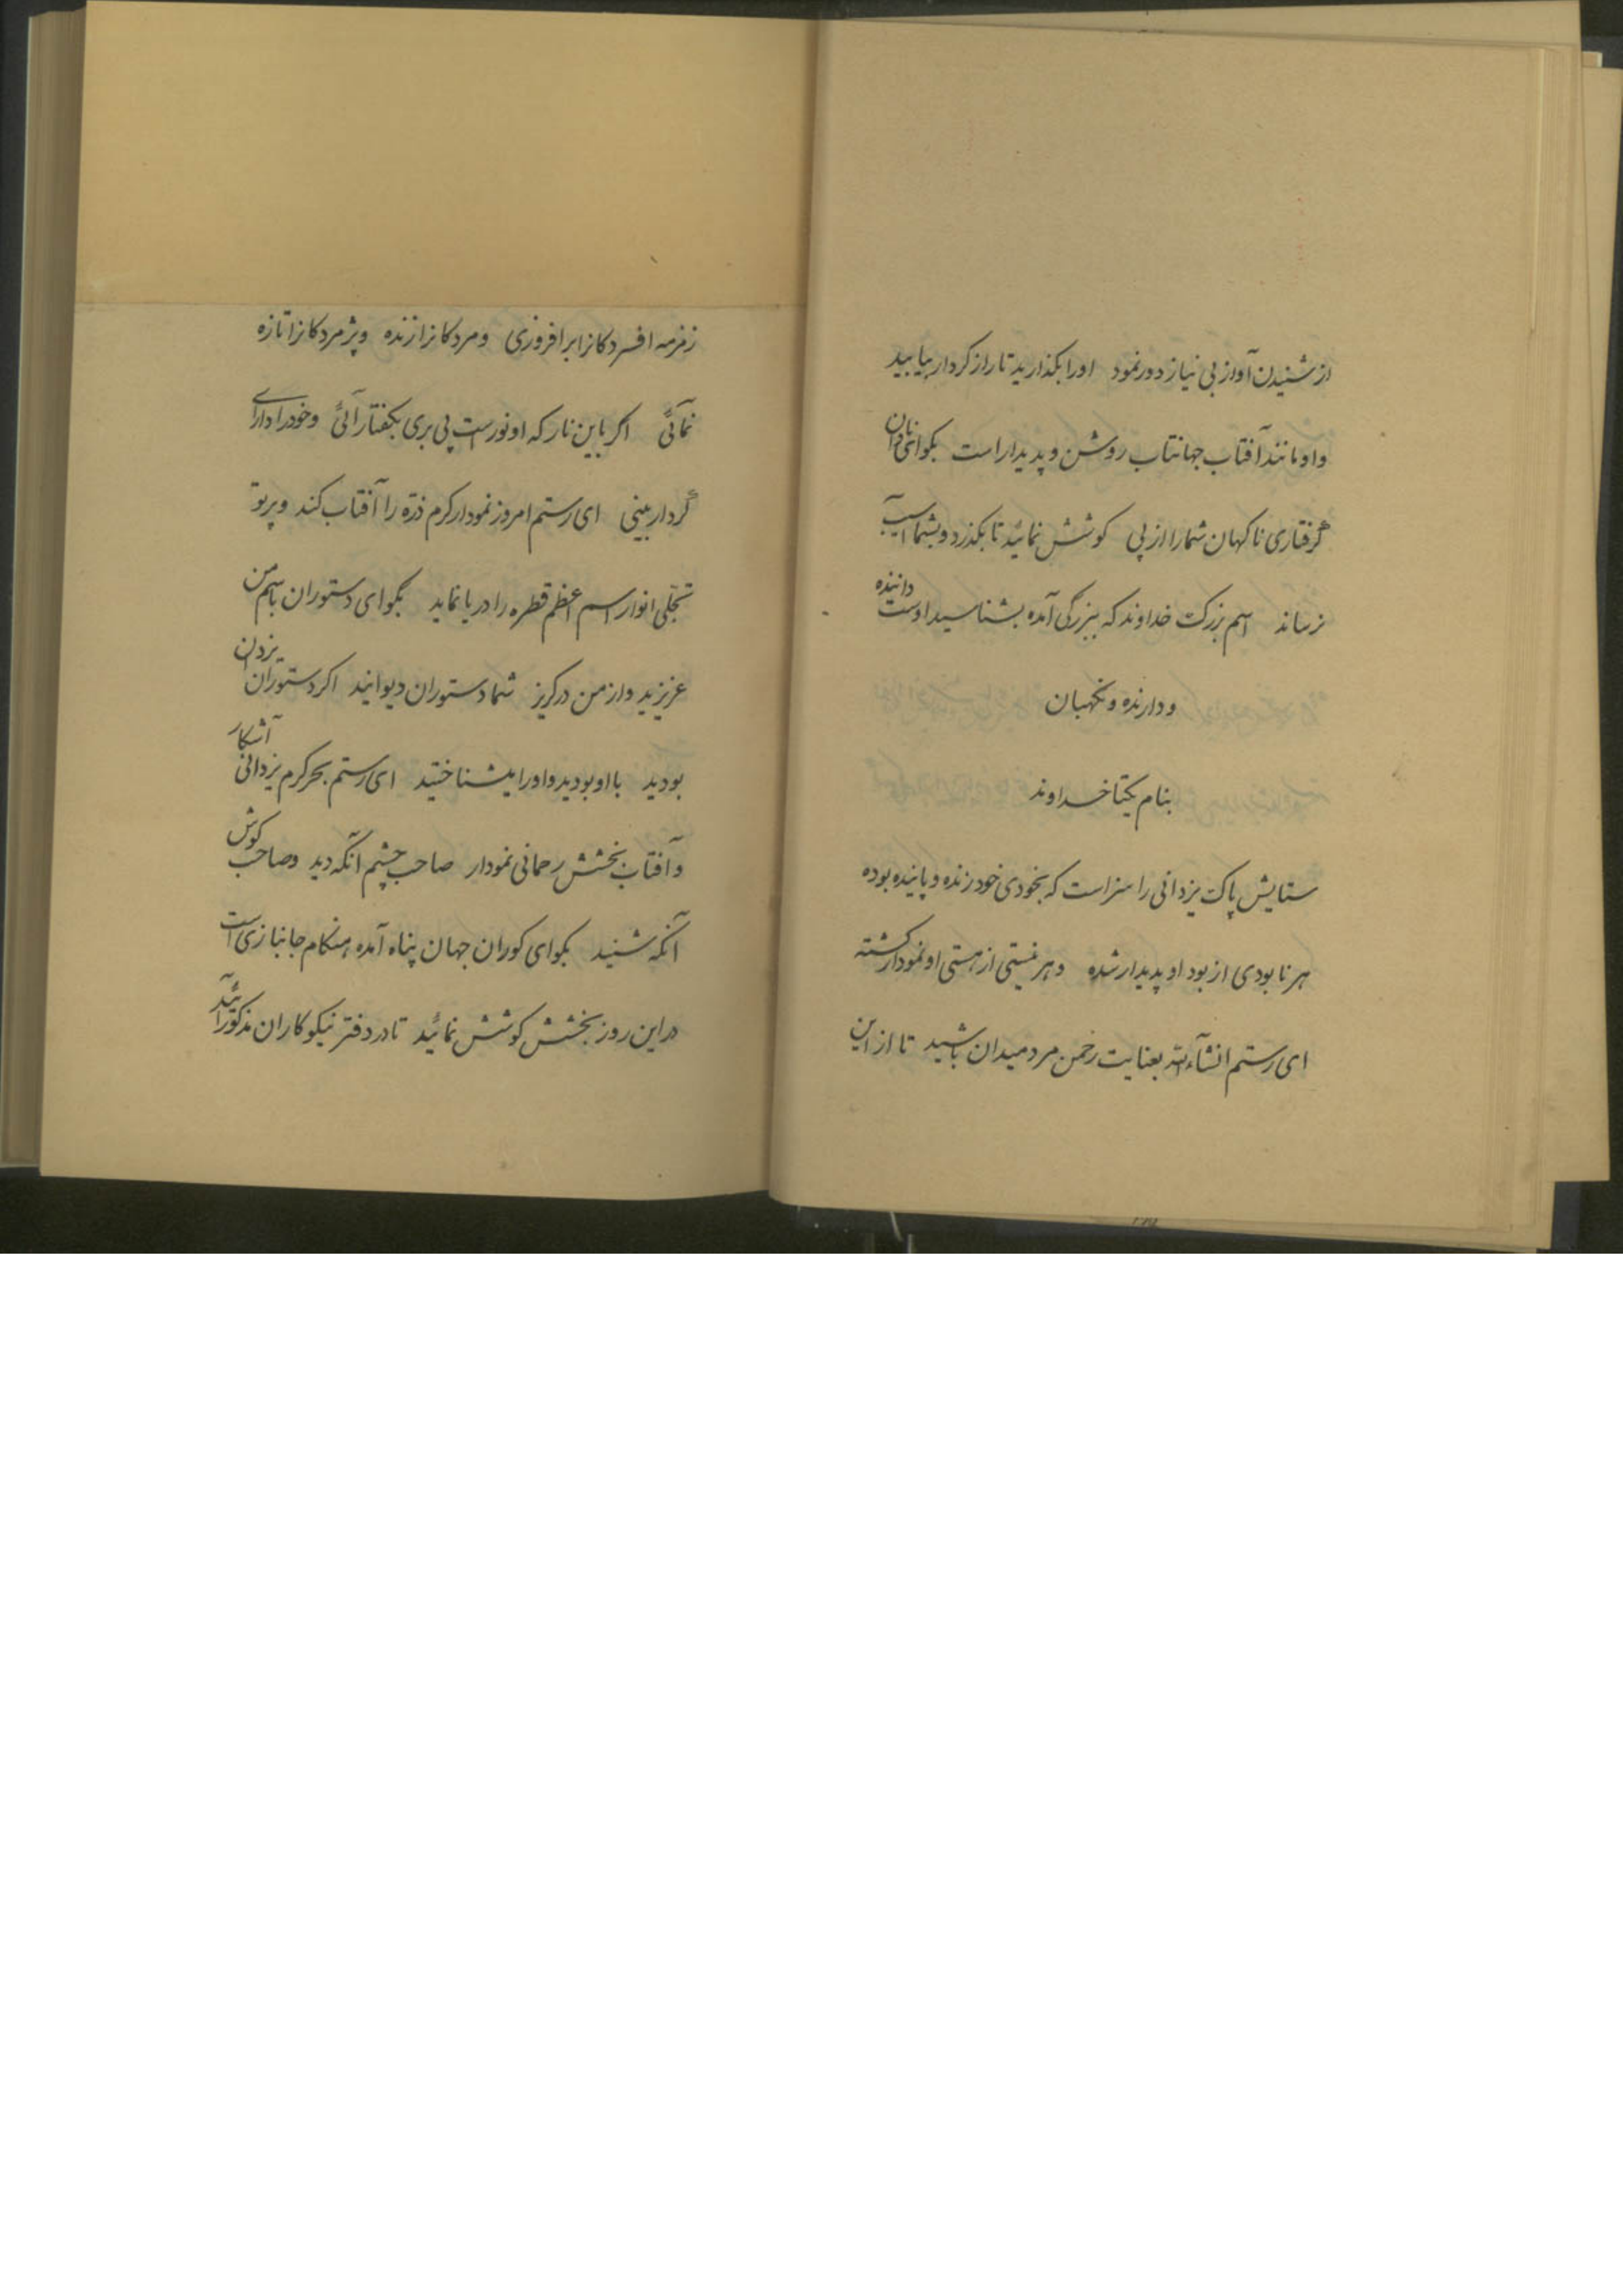 از شنیدن آواز بی نیاز دور نمود اورا بگذارید تا راز کردار بیابید
و او مانند آفتاب جهانتاب روشن و پدیدار است بگو ای نادان
گرفتاری ناگهان شما را از پی کوشش نمائید تا بگذرد و بشما آسیب
نرساند اسم بزرگ خداوند که ببزرگی آمده بشناسید اوست داننده
و دارنده و نگهبان
بنام یکتا خداوند
ستایش پاک یزدانی را سزاست که بخودی خود زنده و پاینده بوده
هر نابودی از بود او پدیدار شده و هر نیستی از هستی او نمودار گشته
ای رستم انشآءالله بعنایت رحمن مرد میدان باشید تا از این
زمزمه افسردگانرا برافروزی و مردگانرا زنده و پژمردگانرا تازه
نمائی اگر باین نار که او نور است پی بری بگفتار آئی و خود را دارای
کردار بینی ای رستم امروز نمودار کرم ذرّه را آفتاب کند و پرتو
تجلّی انوار اسم اعظم قطره را دریا نماید بگو ای دستوران باسم من
عزیزید و از من در گریز شما دستوران دیوانید اگر دستوران یزدان
بودید با او بودید و اورا میشناختید ای رستم بحر کرم یزدانی آشکار
و آفتاب بخشش رحمانی نمودار صاحب چشم آنکه دید و صاحب گوش
آنکه شنید بگو ای کوران جهان پناه آمده هنگام جانبازی است
در این روز بخشش کوشش نمائید تا در دفتر نیکوکاران مذکور آئید